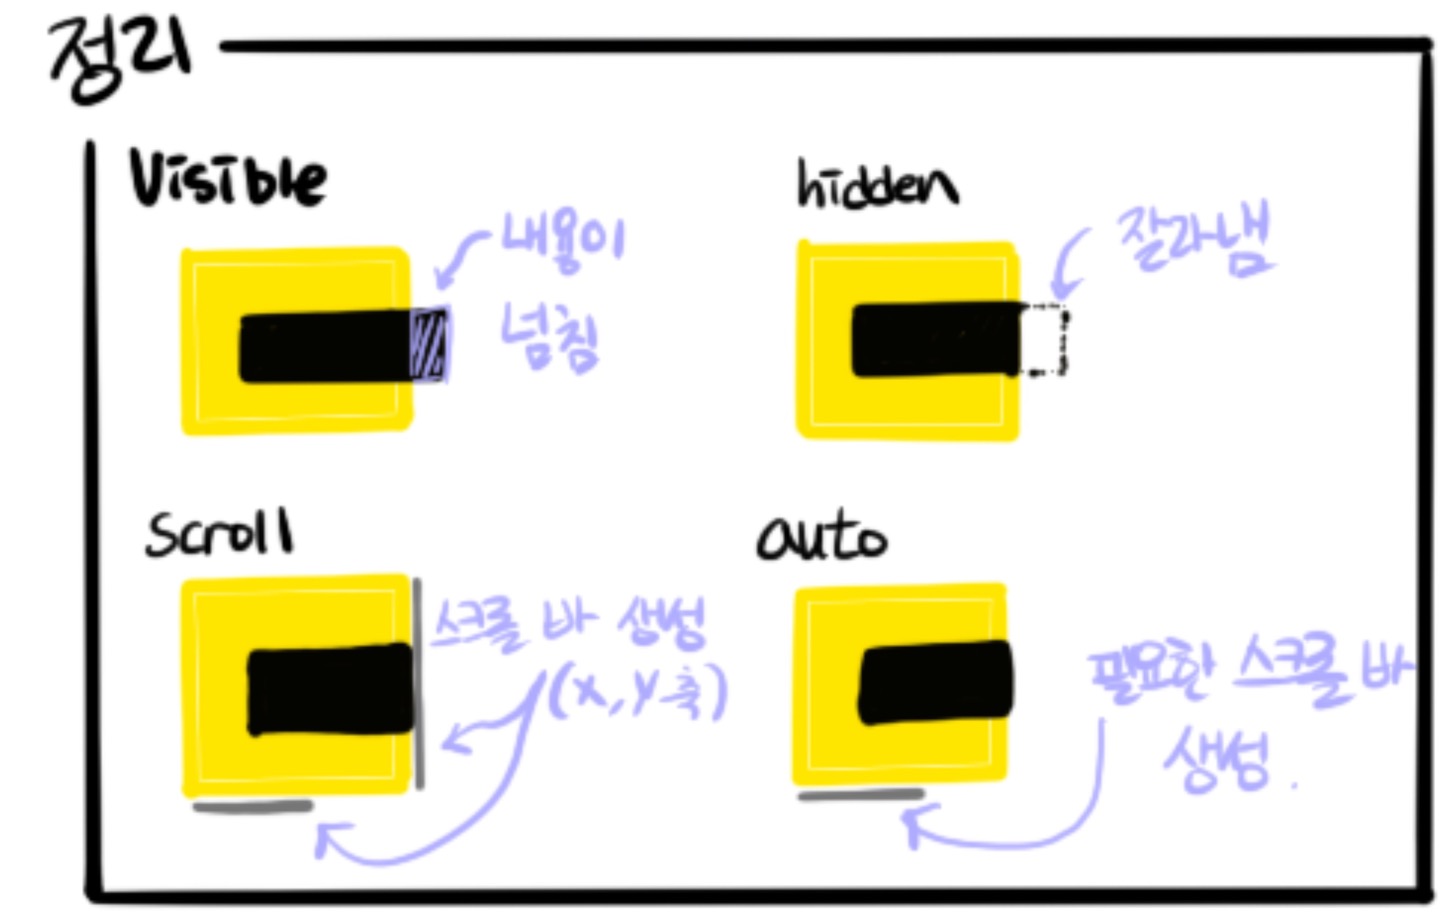 정리
Visible
내용이
넘침
hidden
잘라냄
Scroll
스크롤 바 생성
(x,y축)
auto
필요한 스크롤 바
생성.